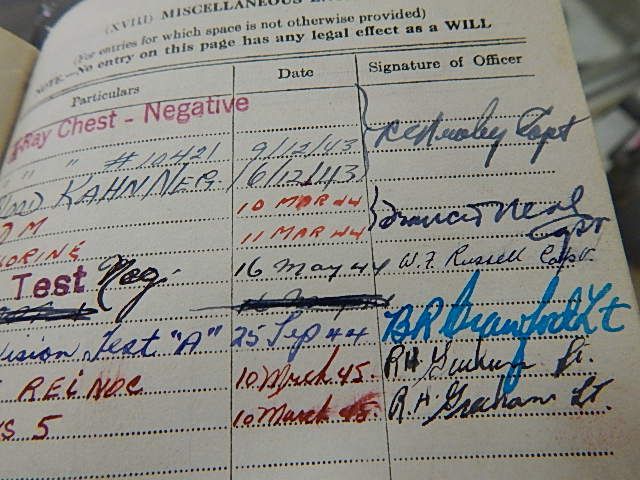 (XVIII) MISCELLANEOUS
(For entries for which space is not otherwise provided)
NOTE—No entry on this page has any legal effect as a WILL
Particulars Date Signature of Officer
X-Ray Chest - Negative
" " " #10421 9/12/43 Capt
KAHN NEG. 16/12/43
M 10 MAR 44 Francis Neal
11 MAR 44 Capt
Test Neg. 16 May 44 W.F. Russell Capt.
Vision Test "A" 25 Sep 44 BR Crawford Lt
REINOC 10 March 45. RH Graham Lt.
S 5 10 March 45. R.H Graham Lt.